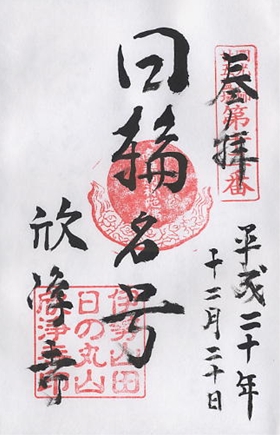 奉拝
平成二十年
十二月二十日
日輪名号
欣浄寺
伊勢山田
日の丸山
欣浄寺